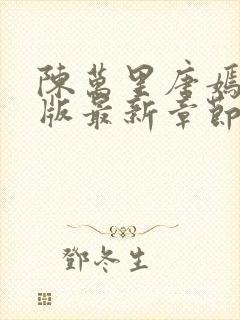 陳萬里唐嫣
版最新章節
鄧冬生